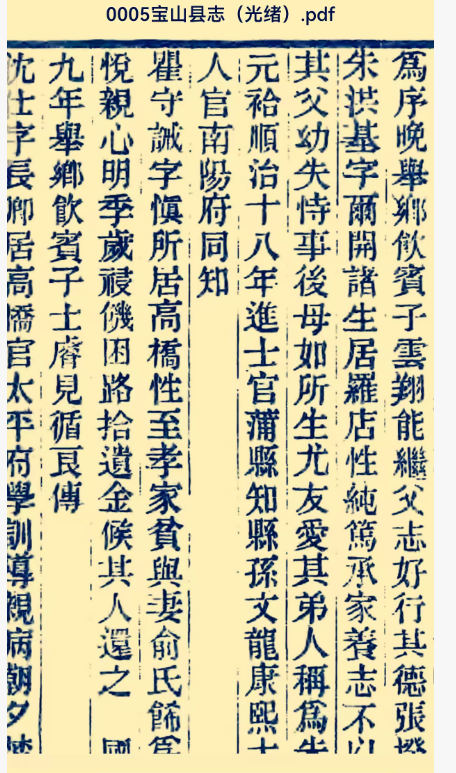 0005宝山县志（光绪）.pdf
爲序晚舉鄉飲賓子雲翔能繼父志好行其德張
朱洪基字爾開諸生居羅店性純篤承家養志不以
其父幼失恃事後母如所生尤友愛其弟人稱爲
元祫順治十八年進士官蒲縣知縣孫文龍康熙
人官南陽府同知
瞿守誠字愼所居高橋性至孝家貧與妻俞氏飾
悅親心明季歲祲饑困路拾遺金候其人還之 國
九年舉鄉飮賓子士䧹見循良傳
沈仕字長卿居高橋官太平府學訓導親病朝夕